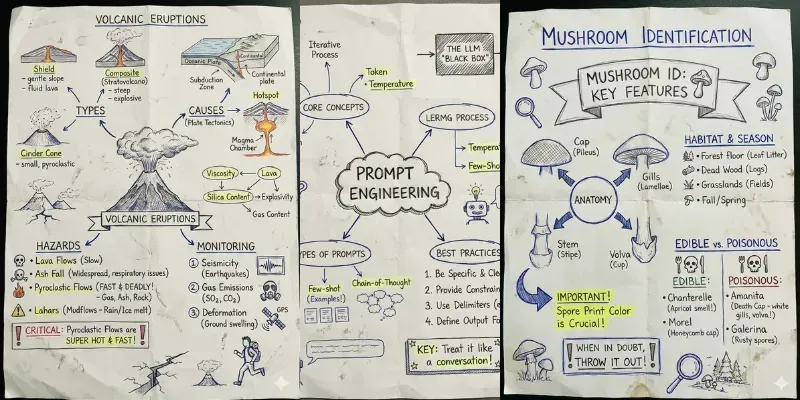 VOLCANIC ERUPTIONS
Shield
- gentle slope
- fluid lava
Composite
(Stratovolcano)
- steep
- explosive
Oceanic Plate
Continental
Subduction
Zone
Continental
plate
TYPES
CAUSES
(Plate Tectonics)
Hotspot
Magma
Chamber
Cinder Cone
- small, pyroclastic
Viscosity
Lava
Silica Content
Explosivity
Gas Content
VOLCANIC ERUPTIONS
HAZARDS
Lava Flows (Slow)
Ash Fall (Widespread, respiratory issues)
Pyroclastic Flows (FAST & DEADLY!)
- Gas, Ash, Rock)
Lahars (Mudflows - Rain/Ice melt)
CRITICAL: Pyroclastic Flows are
SUPER HOT & FAST!
MONITORING
1 Seismicity
(Earthquakes)
2 Gas Emissions
(SO₂, CO₂)
3 Deformation
(Ground swelling)
GPS
Iterative
Process
THE LLM
"BLACK BOX"
Token
• Temperature
CORE CONCEPTS
LERMG PROCESS
Tempera
Few-Sho
PROMPT
ENGINEERING
YPES OF PROMPTS
BEST PRACTICES
Few-shot
(Examples!)
Chain-of-Thought
1. Be Specific & Cle
2. Provide Constrain
3. Use Delimiters (e
4. Define Output Fo
KEY: Treat it like
a conversation!
MUSHROOM IDENTIFICATION
MUSHROOM ID:
KEY FEATURES
Cap
(Pileus)
Gills
(Lamellae)
ANATOMY
Stem
(Stipe)
Volva
(Cup)
HABITAT & SEASON
• Forest Floor (Leaf Litter)
• Dead Wood (Logs)
• Grasslands (Fields)
• Fall/Spring
EDIBLE vs. POISONOUS
EDIBLE:
• Chanterelle
(Apricot smell!)
• Morel
(Honeycomb cap)
POISONOUS:
• Amanita
(Death Cap - white
gills, volva!)
• Galerina
(Rusty spores)
IMPORTANT!
Spore Print Color
is Crucial!
WHEN IN DOUBT,
THROW IT OUT!